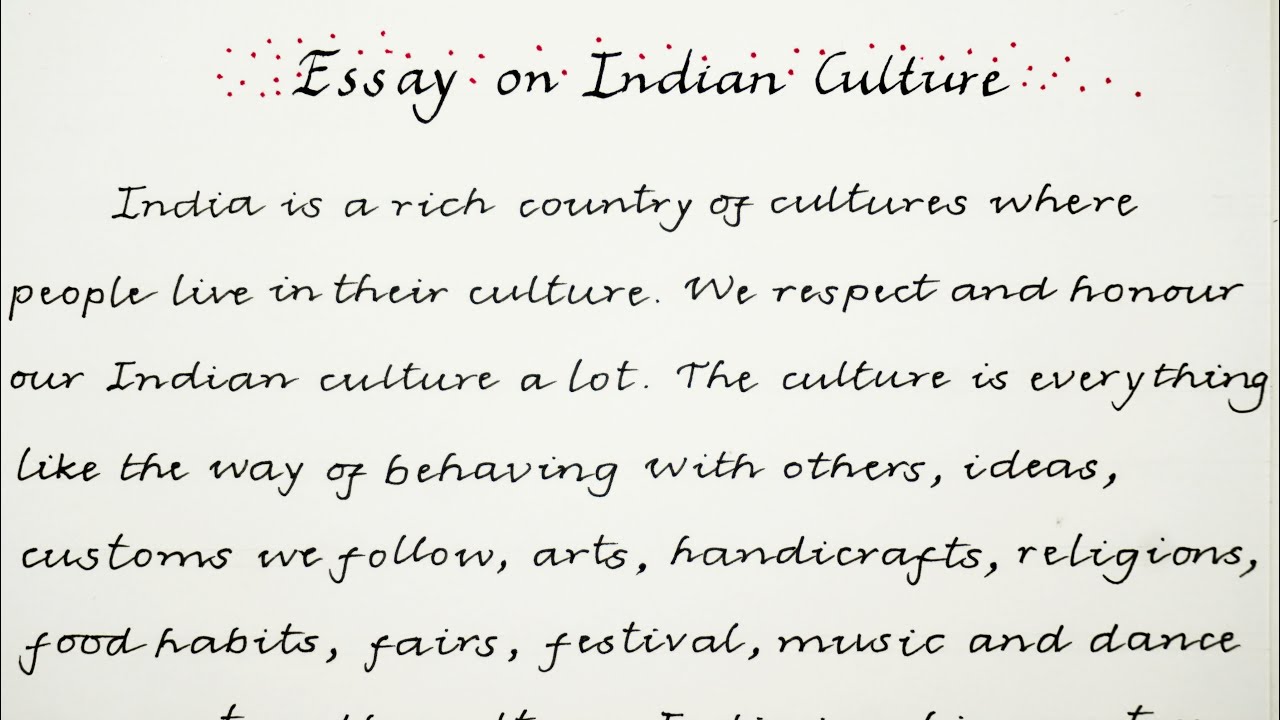 Essay on Indian Culture
India is a rich country of cultures where
people live in their culture. We respect and honour
our Indian culture a lot. The culture is everything
like the way of behaving with others, ideas,
customs we follow, arts, handicrafts, religions,
food habits, fairs, festival, music and dance